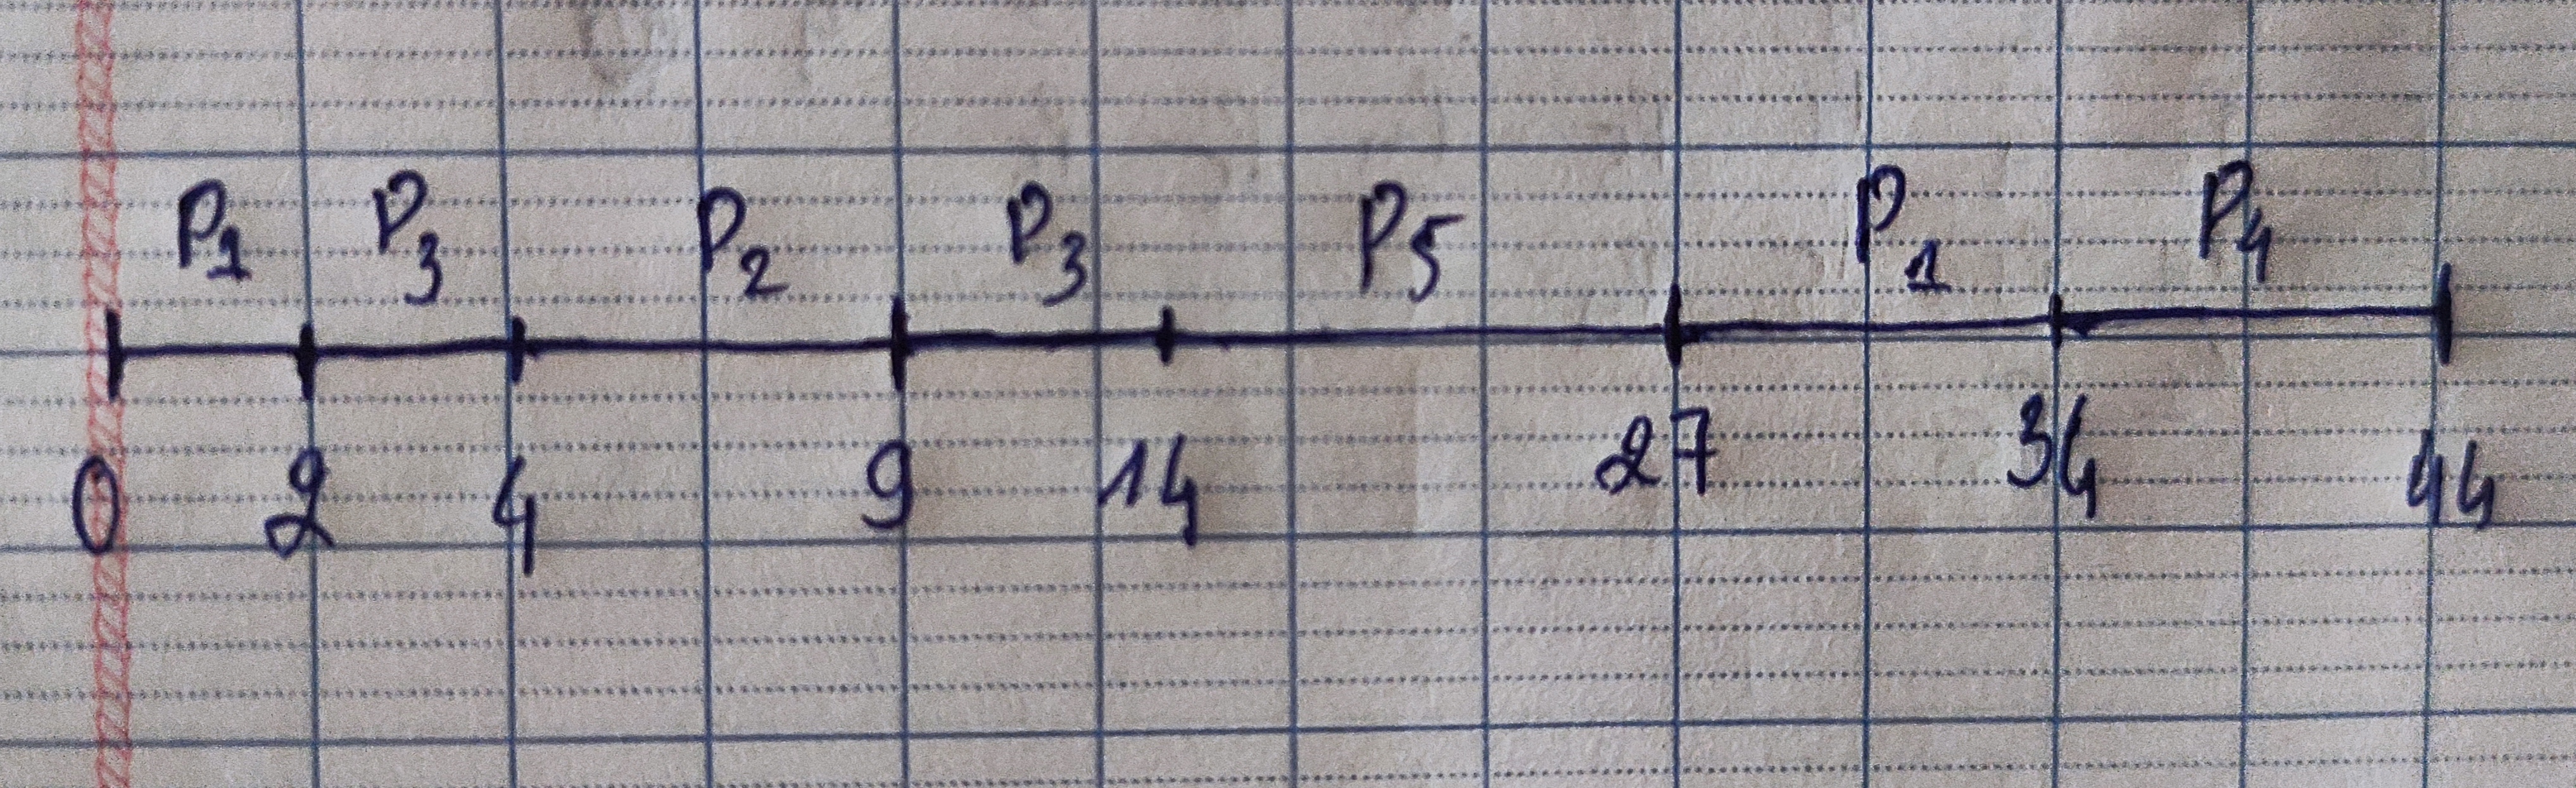 P1 P3 P2 P3 P5 P1 P4
0 2 4 9 14 27 34 44